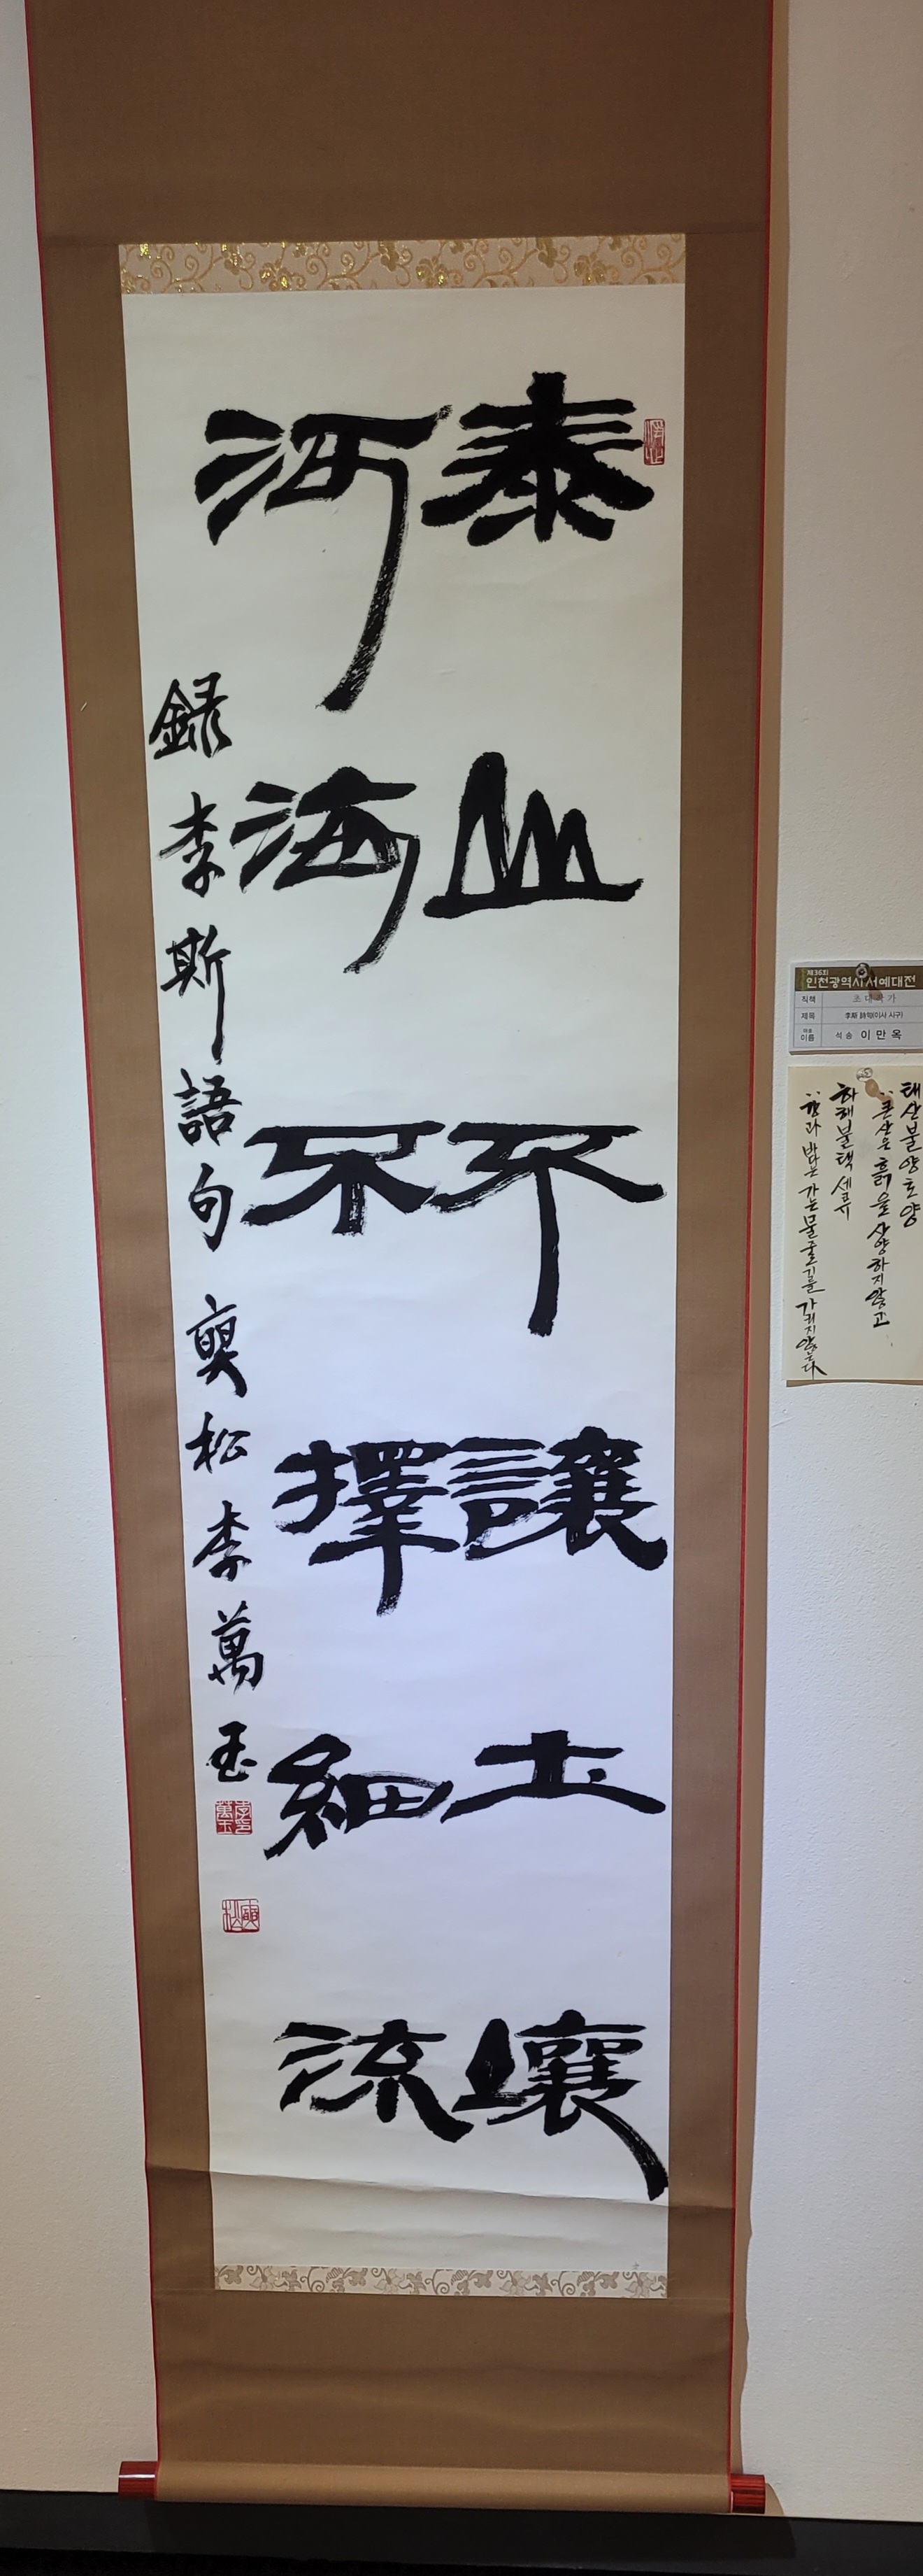 泰山不讓土壤
河海不擇細流
錄李斯語句 奭松 李萬玉
제36회
인천광역시서예대전
직책 초대작가
제목 李斯 詩句(이사 시구)
아호 이름 석송 이만옥
태산불양토양
큰산은 흙을 사양하지않고
하해불택세류
강과 바다는 가는물줄기를 가리지않는다